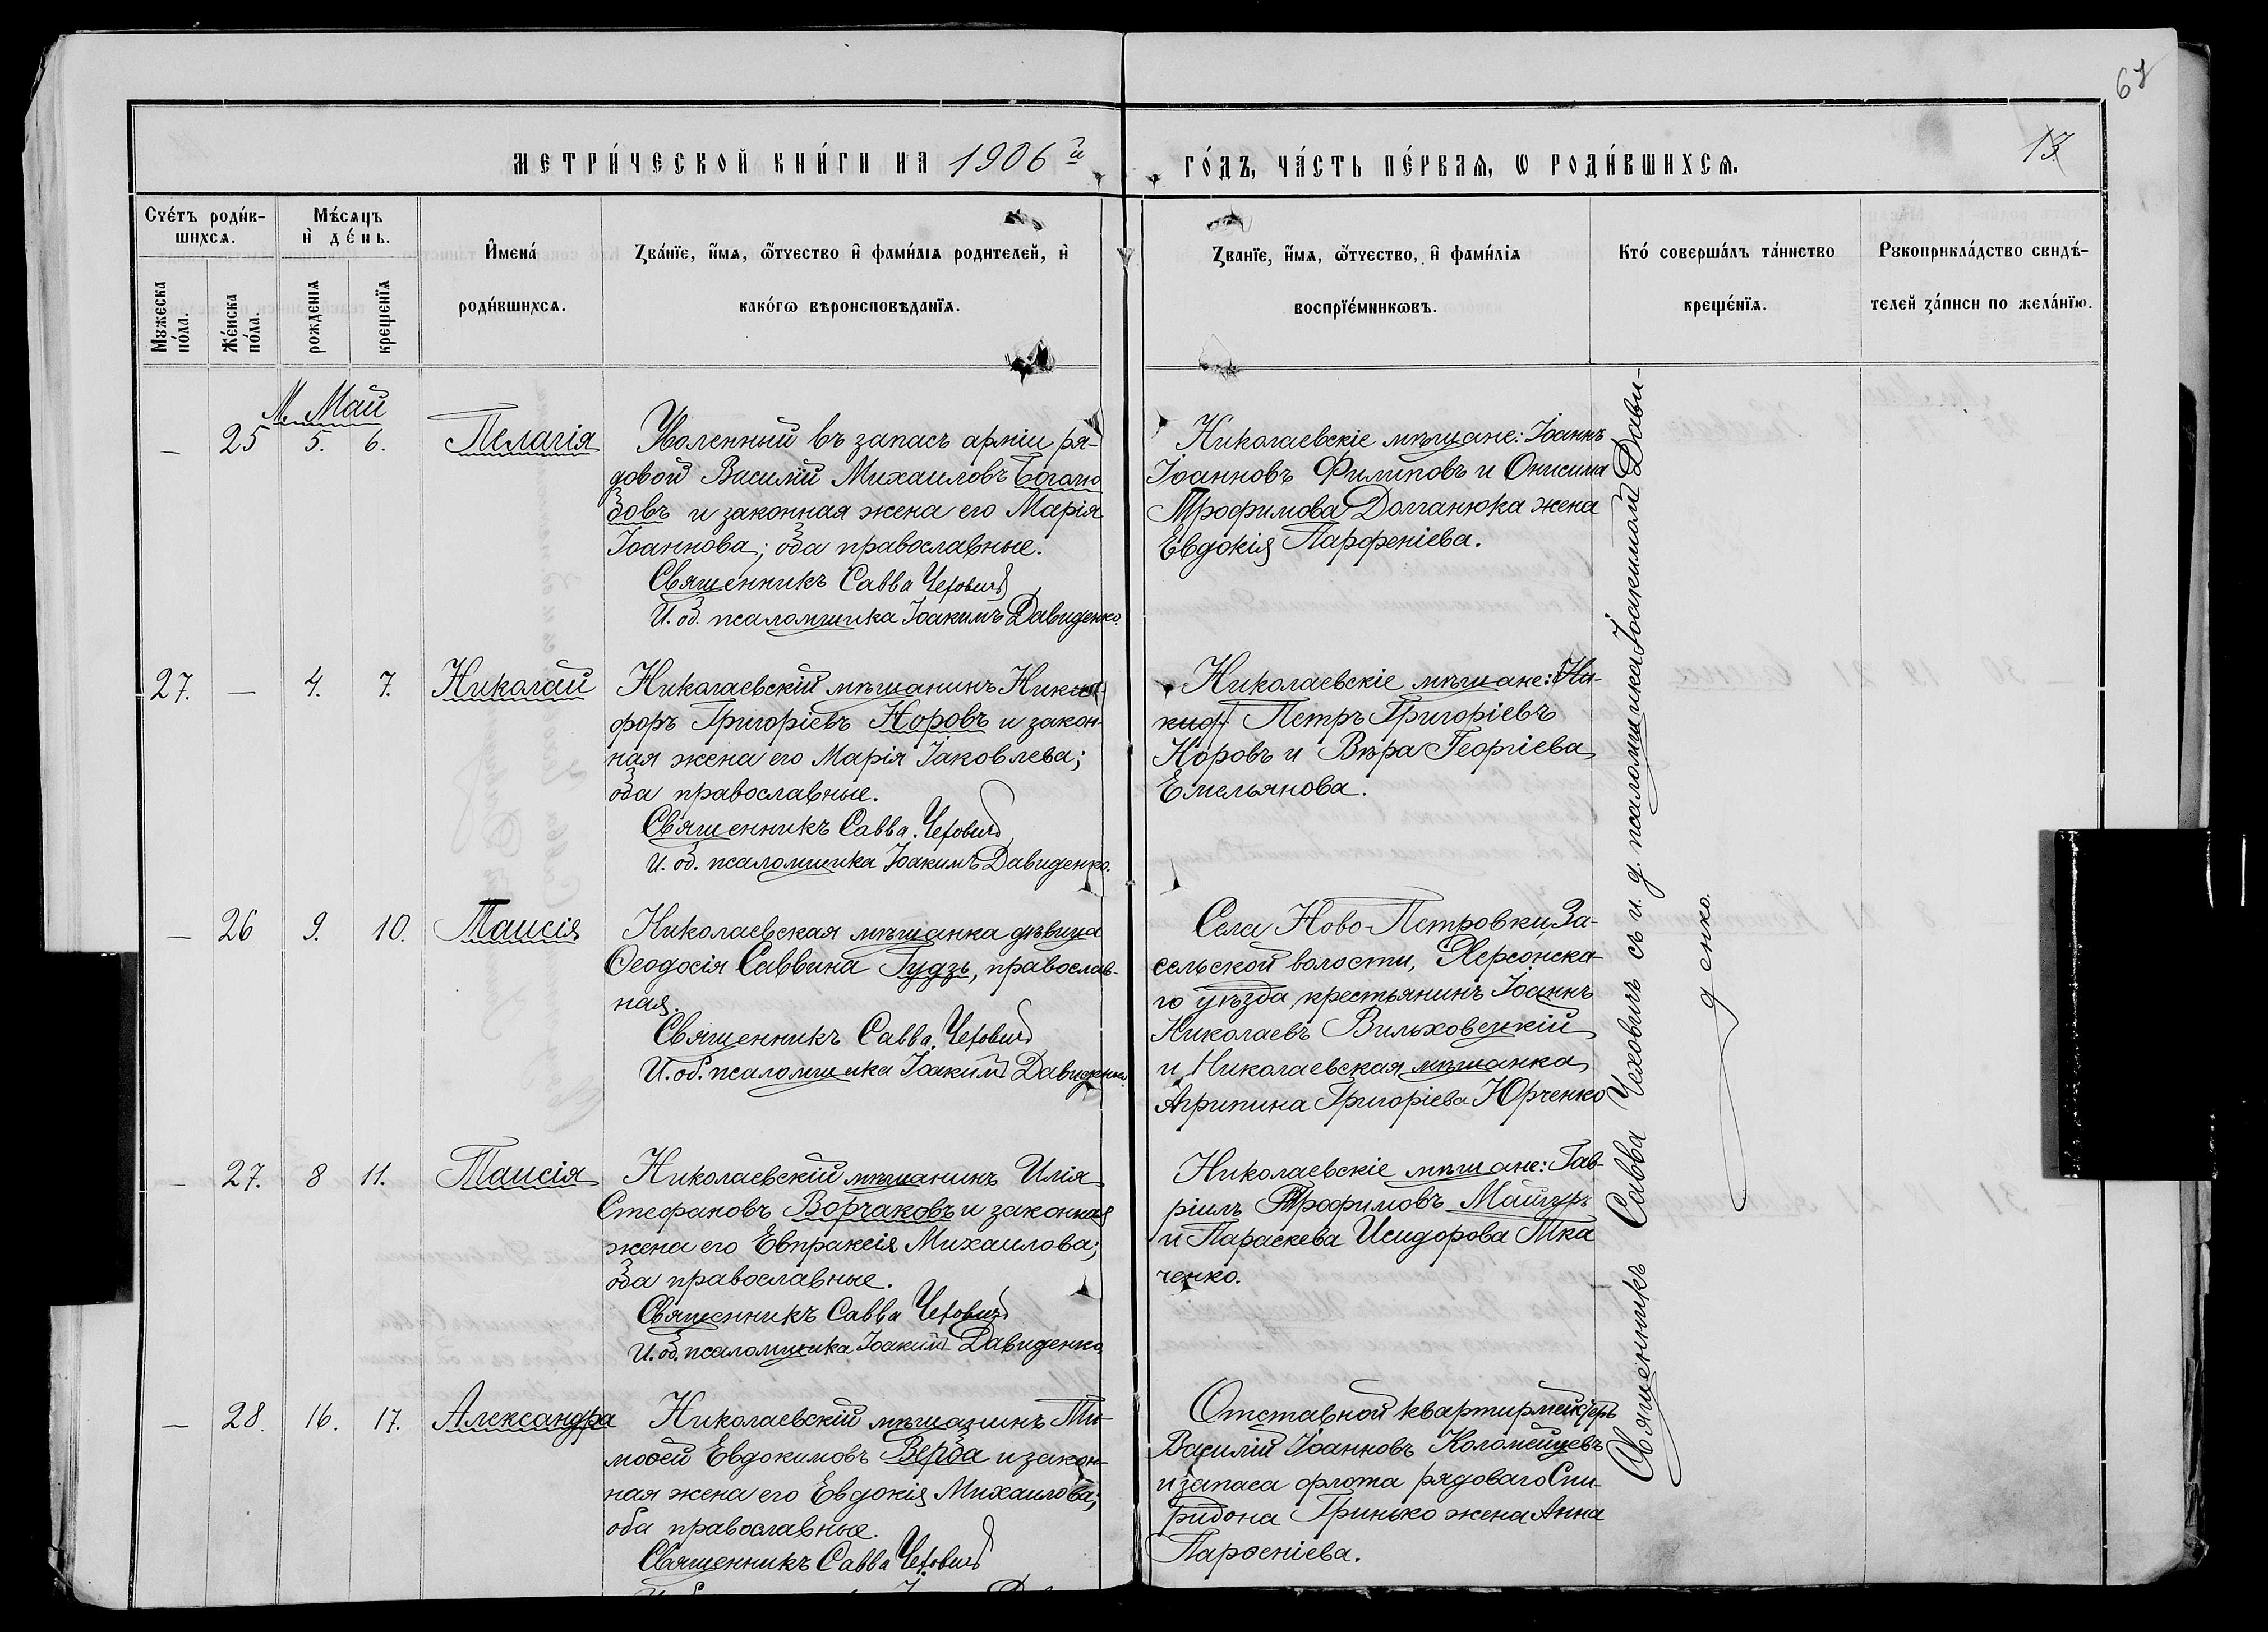 67
МЕТРИ́ЧЕСКОЙ КНИ́ГИ НА 1906й
ГО́ДЪ, ЧА́СТЬ ПЕ́РВАЯ, Ѡ РОДИ́ВШИХСЯ.
13
Сче́тъ роди́в-
шихся.
Мѣ́сяцъ
и де́нь.
Мꙋжеска
по́ла.
Же́нска
по́ла.
рожденїя
крещенїя
И҆мена́
роди́вшихся.
Ꙁва́нїе, и҆́мя, ѻ҆́тчество и҆ фами́лїя родителей, и҆
како́гѡ вѣроисповѣданїя.
Ꙁванїе, и҆́мя, ѻ҆́тчество, и҆ фами́лїя
воспрїе́мникѡвъ.
Кто́ соверша́лъ та́инство
креще́нїя.
Рꙋкоприкла́дство свидѣ́-
телей ꙁа́писи по жела́нїю.
М. Май
— 25 5. 6. Пелагія
Уволенный въ запасъ арміи ря-
довой Василій Михаиловъ Боголю
бовъ и законная жена его Марія
Іоаннова; оба православные.
Священникъ Савва Чеховичъ
И. об. псаломщика Іоакимъ Давиденко.
Николаевскіе мѣщане: Іоаннъ
Іоанновъ Филиповъ и Онисима
Трофимова Долганюка жена
Евдокія Парфеніева.
27. — 4. 7. Николай
Николаевскій мѣщанинъ Ники
форъ Григоріевъ Норовъ и закон-
ная жена его Марія Іаковлева;
оба православные.
Священникъ Савва Чеховичъ
И. об. псаломщика Іоакимъ Давиденко.
Николаевскіе мѣщане: Ни-
киф Петръ Григоріевъ
Норовъ и Вѣра Георгіева
Емельянова.
— 26 9. 10. Таисія
Николаевская мѣщанка дѣвица
Ѳеодосія Саввина Гудзь, православ-
ная.
Священникъ Савва Чеховичъ
И. об. псаломщика Іоакимъ Давиденко.
Села Ново-Петровки, За-
сельской волости, Херсонска-
го уѣзда, крестьянинъ Іоаннъ
Николаевъ Вильховецкій
и Николаевская мѣщанка
Агрипина Григоріева Юрченко
— 27. 8 11. Таисія
Николаевскій мѣщанинъ Илія
Стефановъ Ворчаковъ и законная
жена его Евпраксія Михаилова;
оба православные.
Священникъ Савва Чеховичъ
И. об. псаломщика Іоакимъ Давиденко.
Николаевскіе мѣщане: Гав-
ріилъ Трофимовъ Майгуръ
и Параскева Исидорова Тка
ченко.
— 28. 16. 17. Александра
Николаевскій мѣщанинъ Ти-
моѳей Евдокимовъ Верба и закон-
ная жена его Евдокія Михаилова;
оба православные.
Священникъ Савва Чеховичъ
Отставной квартирмейстеръ
Василій Іоанновъ Коломейцевъ
и запаса флота рядоваго Спи-
ридона Гринько жена Анна
Парѳеніева.
Священникъ Савва Чеховичъ съ и. д. псаломщика Іоакимомъ Дави-
денко.